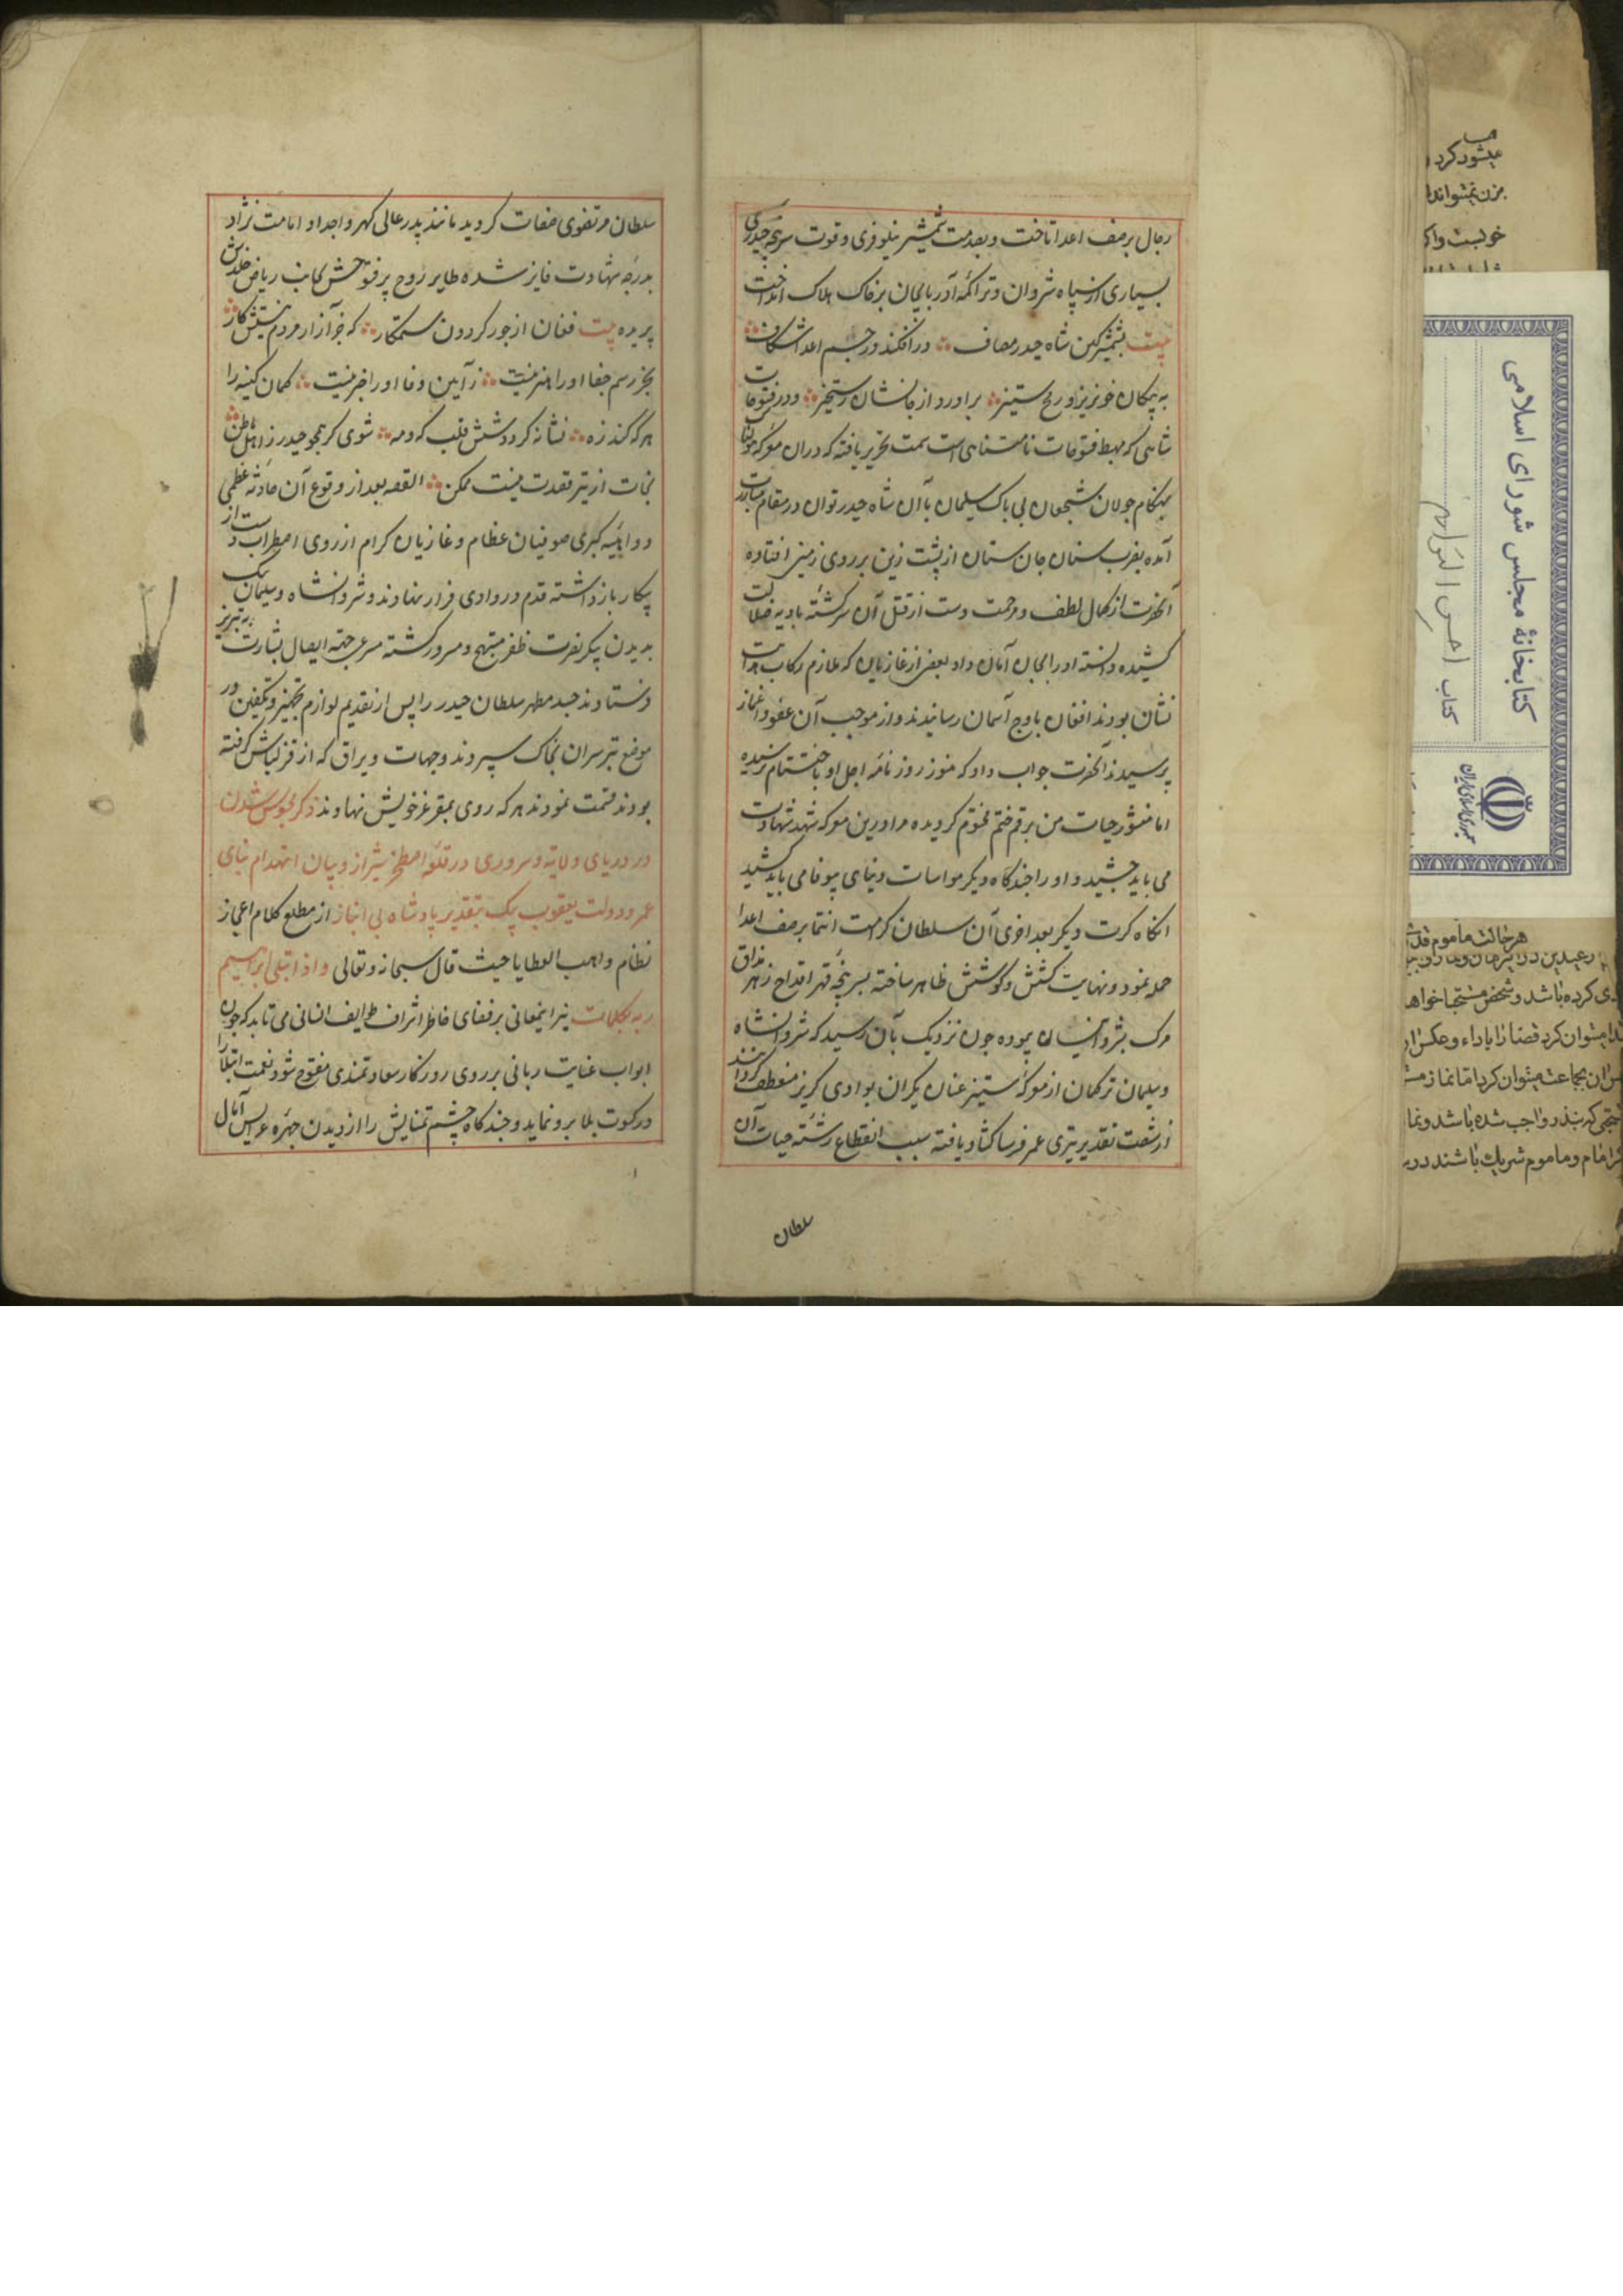 رجال برصف اعدا تاخت و بصدمت شمشیر نیلوفری و قوت سرپنجه حیدری
بسیاری از سپاه شروان و تراکمه آذربایجان برخاک هلاک انداخت
بیت بشمشیر کین شاه حیدر مصاف در افکند در جسم اعدا شکاف
به پیکان خونریز و رمح ستیز براورد از جانشان رستخیز و در فتوحات
شاهی که مهبط فتوحات نامتناهی است سمت تحریر یافته که دران معرکه
بهنکام جولان شجعان بی باک سلیمان با آن شاه حیدر توان در مقام مبارزت
آمده بضرب سنان جان ستان از پشت زین بر روی زمین افتاده
آنحضرت از کمال لطف و مرحمت دست از قتل آن سرکشته بادیه ضلالت
کشیده دانسته او را بجان امان داد بعضی از غازیان که ملازم رکاب هدایت
نشان بودند افغان باوج آسمان رسانیدند و از موجب آن عفو و اغماز
پرسیدند آنحضرت جواب داد که هنوز روزنامه اجل او باختتام نرسیده
اما منشور حیات من برقم ختم مختوم کردیده مرا درین معرکه شهد شهادت
می باید چشید و او را چندکاه دیکر مواسات دنیای بیوفا می باید کشید
انکاه کرت دیکر بعد اخری آن سلطان کرامت انتما برصف اعدا
حمله نمود و نهایت کشش و کوشش ظاهر ساخته بسرپنجه قهر اقداح زهر مذاق
مرک بشروانیان پیموده چون نزدیک بآن رسید که شروانشاه
و سلیمان ترکمان از معرکه ستیز عنان یکران بوادی کریز منعطف کردانند
از شصت تقدیر تیری عمر فرسا کشاد یافته سبب انقطاع رشته حیات آن
سلطان
سلطان مرتضوی صفات کردید مانند پدر عالی کهر و اجداد امامت نژاد
بدرجه شهادت فایز شده طایر روح پرفتوحش بجانب ریاض خلدش
پریده بیت فغان از جور کردون ستمکار که جز آزار مردم نیستش کار
بجز رسم جفا او را هنر نیست ز آیین وفا او را خبر نیست کمان کینه را
هرکه کند زه نشانه کرددش قلب که و مه شوی کر همچو حیدر ز اهل باطن
نجات از تیر تقدیرت نیست ممکن القصه بعد از وقوع آن حادثه عظمی
و داهیه کبری صوفیان عظام و غازیان کرام از روی اضطراب دست از
پیکار بازداشته قدم در وادی فرار نهادند و شروانشاه و سلیمان بیک
بدیدن پیکر نصرت ظفر مبتهج و مسرور کشته مسرعی جهة ایصال بشارت به تبریز
فرستادند جسد مطهر سلطان حیدر را پس از تقدیم لوازم تجهیز و تکفین در
موضع تبرسران بخاک سپردند و جهات و یراق که از قزلباش کرفته
بودند قسمت نمودند هرکه روی بمقر عز خویش نهادند ذکر محبوس شدن
در دریای ولایه و سروری در قلعه اصطخر شیراز و بیان انهدام بنای
عمر و دولت یعقوب بیک بتقدیر پادشاه بی انباز از مطلع کلام اعجاز
نظام واهب العطایا حیث قال سبحانه و تعالی و اذ ابتلی ابراهیم
ربه بکلمات نیر اینمعانی برفضای خاطر اشراف طوایف انسانی می تابد که چون
ابواب عنایت ربانی بر روی روزکار سعادتمندی مفتوح شود نعمت ابتلا را
در کسوت بلا برو نماید و چندکاه چشم تمنایش را از دیدن چهره عرایس آمال
میشود کرد
هرحالت ماموم
کرده باشد و شخص
میتوان کرد قضا را باداء و عکس
بجماعت میتوان کرد اما نماز
که بنذر واجب شده باشد و نماز
امام و ماموم شریک باشند در
کتابخانهٔ مجلس شورای اسلامی
کتاب احسن التواریخ
جمهوری اسلامی ایران